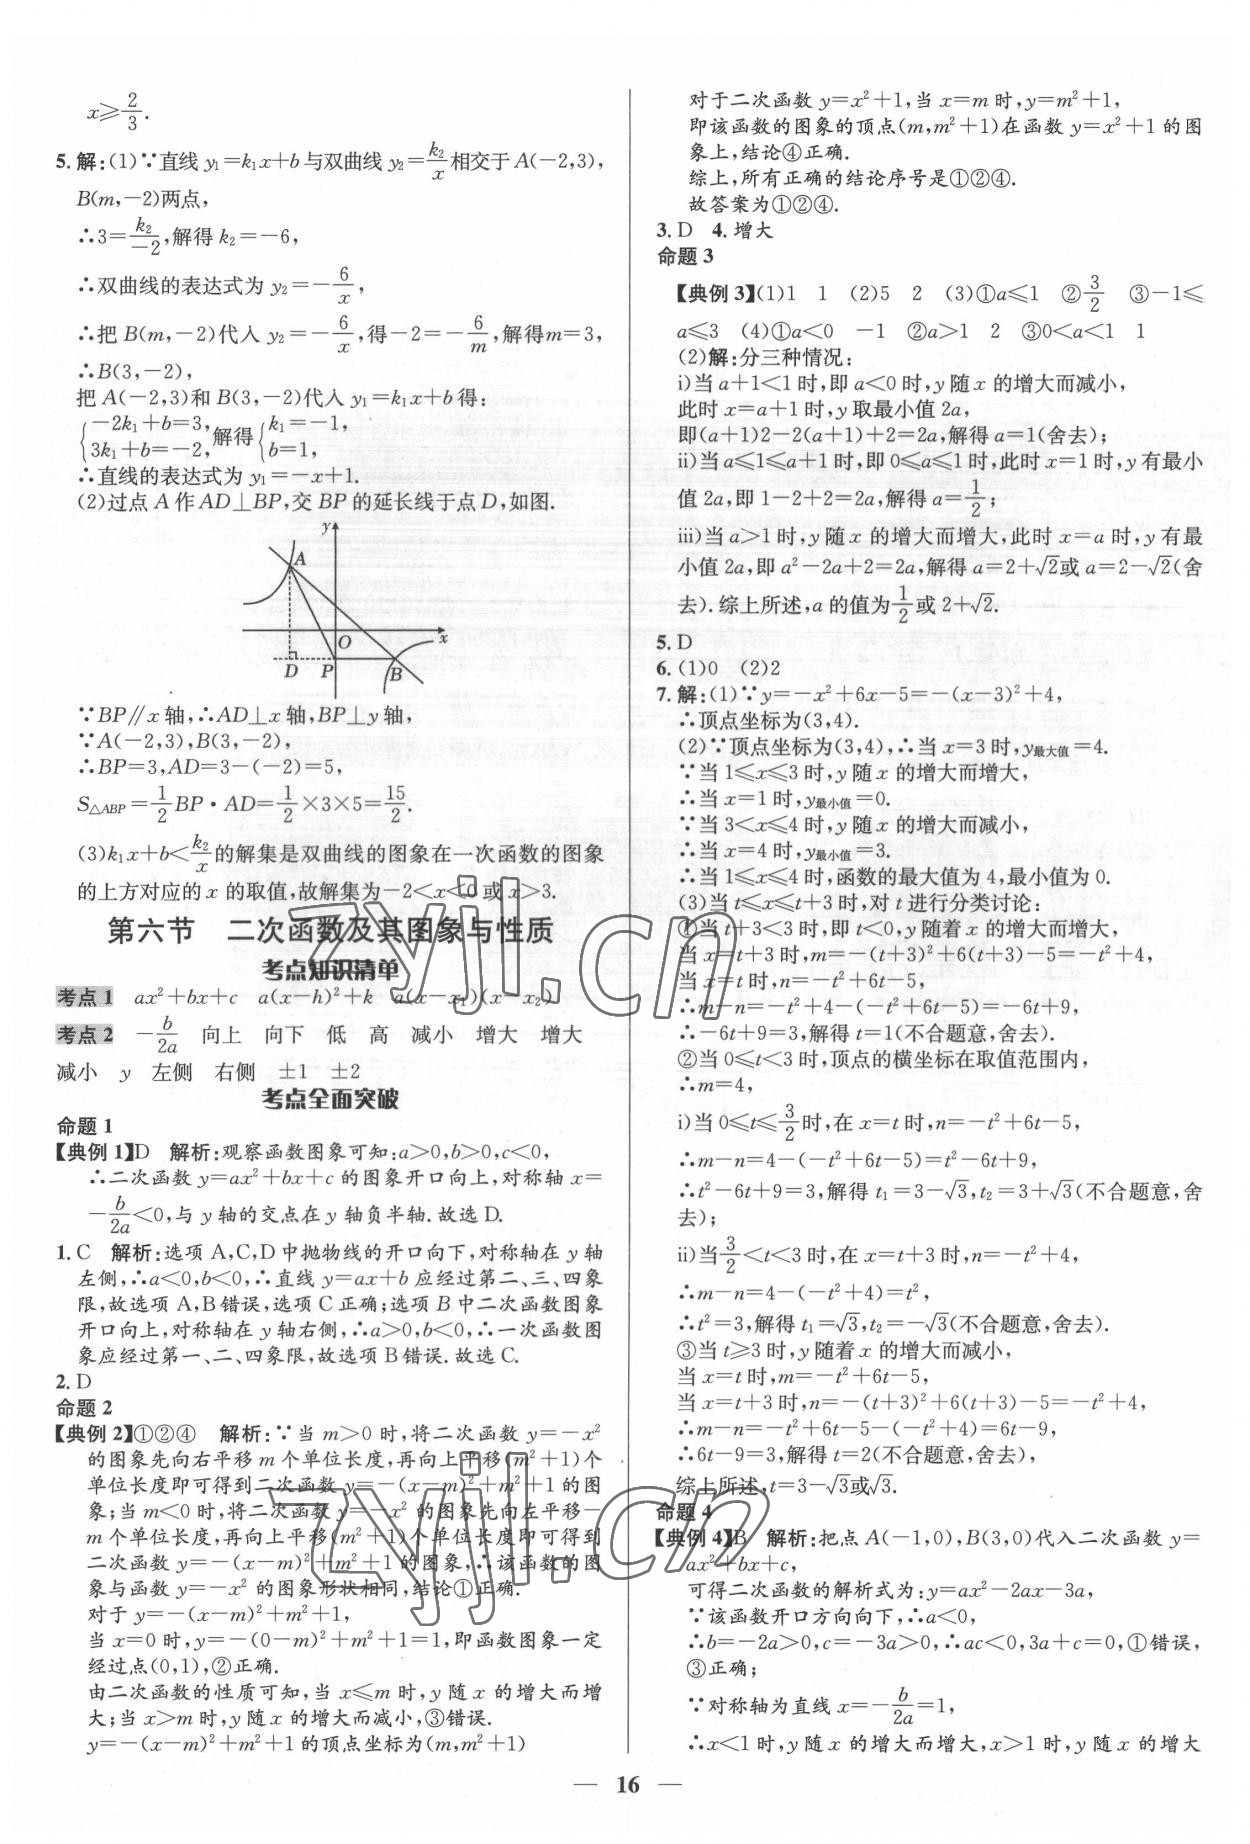 x≥2/3.
5.解:(1)∵直线 y₁=k₁x+b与双曲线 y₂=k₂/x相交于A(-2,3),
B(m,-2)两点,
∴3=k₂/-2,解得 k₂=-6,
∴双曲线的表达式为 y₂=-6/x,
∴把 B(m,-2)代入 y₂=-6/x,得-2=-6/m,解得m=3,
∴B(3,-2),
把 A(-2,3)和 B(3,-2)代入 y₁=k₁x+b得:
{-2k₁+b=3, 3k₁+b=-2, 解得{k₁=-1, b=1,
∴直线的表达式为 y₁=-x+1.
(2)过点 A 作 AD⊥BP,交 BP 的延长线于点 D,如图.
y
A
O
x
D P B
∵BP∥x 轴,∴AD⊥x 轴,BP⊥y 轴,
∵A(-2,3),B(3,-2),
∴BP=3,AD=3-(-2)=5,
S△ABP=1/2BP·AD=1/2×3×5=15/2.
(3)k₁x+b<k₂/x的解集是双曲线的图象在一次函数的图象
的上方对应的 x 的取值,故解集为-2<x<0 或 x>3.
第六节 二次函数及其图象与性质
考点知识清单
考点 1 ax²+bx+c a(x-h)²+k a(x-x₁)(x-x₂)
考点 2 -b/2a 向上 向下 低 高 减小 增大 增大
减小 y 左侧 右侧 ±1 ±2
考点全面突破
命题 1
【典例 1】D 解析:观察函数图象可知:a>0,b>0,c<0,
∴二次函数 y=ax²+bx+c 的图象开口向上,对称轴 x=
-b/2a<0,与 y 轴的交点在 y 轴负半轴.故选 D.
1.C 解析:选项 A,C,D 中抛物线的开口向下,对称轴在 y 轴
左侧,∴a<0,b<0,∴直线 y=ax+b 应经过第二、三、四象
限,故选项 A,B 错误,选项 C 正确;选项 B 中二次函数图象
开口向上,对称轴在 y 轴右侧,∴a>0,b<0,∴一次函数图
象应经过第一、二、四象限,故选项 B 错误.故选 C.
2.D
命题 2
【典例 2】①②④ 解析:∵当 m>0 时,将二次函数 y=-x²
的图象先向右平移 m 个单位长度,再向上平移(m²+1)个
单位长度即可得到二次函数 y=-(x-m)²+m²+1 的图
象;当 m<0 时,将二次函数 y=-x² 的图象先向左平移-
m 个单位长度,再向上平移(m²+1)个单位长度即可得到
二次函数 y=-(x-m)²+m²+1 的图象,∴该函数的图
象与函数 y=-x² 的图象形状相同,结论①正确.
对于 y=-(x-m)²+m²+1,
当 x=0 时,y=-(0-m)²+m²+1=1,即函数图象一定
经过点(0,1),②正确.
由二次函数的性质可知,当 x≤m 时,y 随 x 的增大而增
大;当 x>m 时,y 随 x 的增大而减小,③错误.
y=-(x-m)²+m²+1 的顶点坐标为(m,m²+1)
对于二次函数 y=x²+1,当 x=m 时,y=m²+1,
即该函数的图象的顶点(m,m²+1)在函数 y=x²+1 的图
象上,结论④正确.
综上,所有正确的结论序号是①②④.
故答案为①②④.
3.D 4.增大
命题 3
【典例 3】(1)1 1 (2)5 2 (3)①a≤1 ②3/2 ③-1≤
a≤3 (4)①a<0 -1 ②a>1 2 ③0<a<1 1
(2)解:分三种情况:
i)当 a+1<1 时,即 a<0 时,y 随 x 的增大而减小,
此时 x=a+1 时,y 取最小值 2a,
即(a+1)2-2(a+1)+2=2a,解得 a=1(舍去);
ii)当 a≤1≤a+1 时,即 0≤a≤1 时,此时 x=1 时,y 有最小
值 2a,即 1-2+2=2a,解得 a=1/2;
iii)当 a>1 时,y 随 x 的增大而增大,此时 x=a 时,y 有最
小值 2a,即 a²-2a+2=2a,解得 a=2+√2或 a=2-√2(舍
去).综上所述,a 的值为1/2或 2+√2.
5.D
6.(1)0 (2)2
7.解:(1)∵y=-x²+6x-5=-(x-3)²+4,
∴顶点坐标为(3,4).
(2)∵顶点坐标为(3,4),∴当 x=3 时,y最大值=4.
∵当 1≤x≤3 时,y 随 x 的增大而增大,
∴当 x=1 时,y最小值=0.
∵当 3<x≤4 时,y 随 x 的增大而减小,
∴当 x=4 时,y最小值=3.
∴当 1≤x≤4 时,函数的最大值为 4,最小值为 0.
(3)当 t≤x≤t+3 时,对 t 进行分类讨论:
①当 t+3<3 时,即 t<0,y 随着 x 的增大而增大,
当 x=t+3 时,m=-(t+3)²+6(t+3)-5=-t²+4,
当 x=t 时,n=-t²+6t-5,
∴m-n=-t²+4-(-t²+6t-5)=-6t+9,
∴-6t+9=3,解得 t=1(不合题意,舍去).
②当 0≤t<3 时,顶点的横坐标在取值范围内,
∴m=4,
i)当 0≤t≤3/2时,在 x=t 时,n=-t²+6t-5,
∴m-n=4-(-t²+6t-5)=t²-6t+9,
∴t²-6t+9=3,解得 t₁=3-√3,t₂=3+√3(不合题意,舍
去);
ii)当3/2<t<3 时,在 x=t+3 时,n=-t²+4,
∴m-n=4-(-t²+4)=t²,
∴t²=3,解得 t₁=√3,t₂=-√3(不合题意,舍去).
③当 t≥3 时,y 随着 x 的增大而减小,
当 x=t 时,m=-t²+6t-5,
当 x=t+3 时,n=-(t+3)²+6(t+3)-5=-t²+4,
∴m-n=-t²+6t-5-(-t²+4)=6t-9,
∴6t-9=3,解得 t=2(不合题意,舍去),
综上所述,t=3-√3或√3.
命题 4
【典例 4】B 解析:把点 A(-1,0),B(3,0)代入二次函数 y=
ax²+bx+c,
可得二次函数的解析式为:y=ax²-2ax-3a,
∵该函数开口方向向下,∴a<0,
∴b=-2a>0,c=-3a>0,∴ac<0,3a+c=0,①错误,
③正确;
∵对称轴为直线 x=-b/2a=1,
∴x<1 时,y 随 x 的增大而增大,x>1 时,y 随 x 的增大
— 16 —
zyjl.cn
zyjl.cn